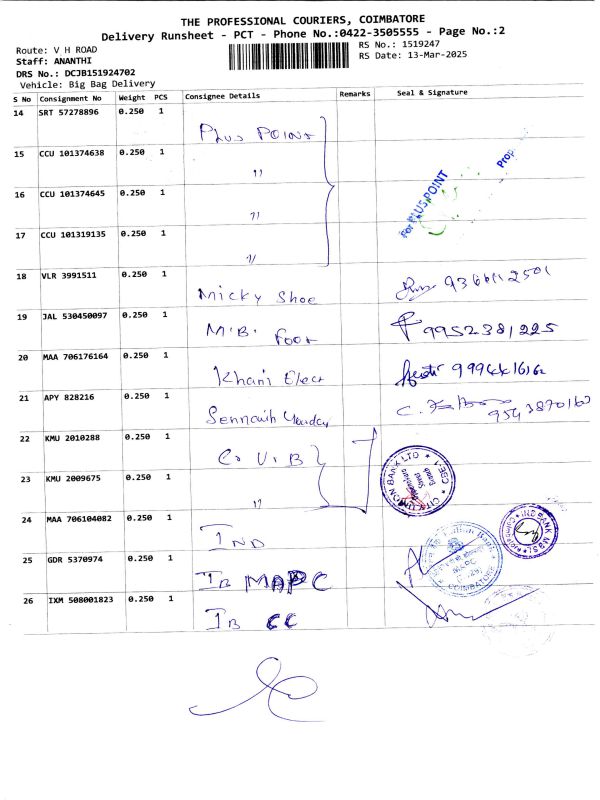 THE PROFESSIONAL COURIERS, COIMBATORE
Delivery Runsheet - PCT - Phone No.:0422-3505555 - Page No.:2
Route: V H ROAD
RS No.: 1519247
Staff: ANANTHI
RS Date: 13-Mar-2025
DRS No.: DCJB151924702
Vehicle: Big Bag Delivery
S No Consignment No Weight PCS Consignee Details Remarks Seal & Signature
14 SRT 57278896 0.250 1
Plus Point
15 CCU 101374638 0.250 1
"
For PLUS POINT
Prop
16 CCU 101374645 0.250 1
"
17 CCU 101319135 0.250 1
"
18 VLR 3991511 0.250 1
Micky Shoe
19 JAL 530450097 0.250 1
M.B. Foot 9952381225
20 MAA 706176164 0.250 1
Khani Elect
21 APY 828216 0.250 1
22 KMU 2010288 0.250 1
C.U.B
CITY UNION BANK LTD
23 KMU 2009675 0.250 1
"
24 MAA 706104082 0.250 1
IND
25 GDR 5370974 0.250 1
IB MAPC
COIMBATORE
26 IXM 508001823 0.250 1
IB CC